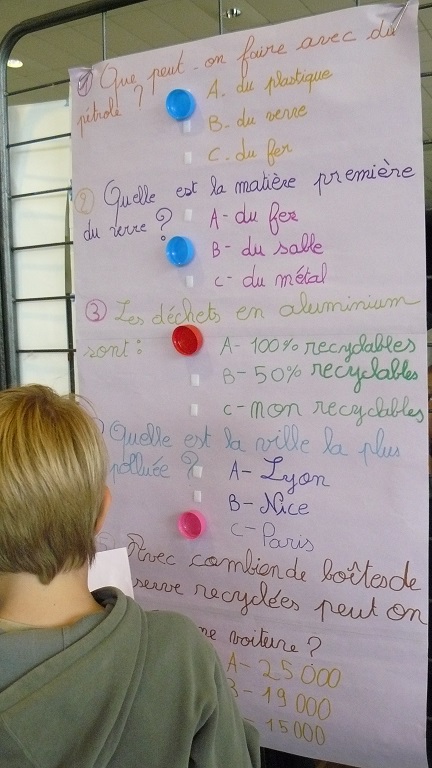 1 Que peut-on faire avec du
pétrole ?
A. du plastique
B. du verre
C. du fer
2 Quelle est la matière première
du verre ?
A- du fer
B- du sable
C- du métal
3 Les déchets en aluminium
sont :
A- 100% recyclables
B- 50% recyclables
C- non recyclables
Quelle est la ville la plus
polluée ?
A- Lyon
B- Nice
C- Paris
Avec combien de boîtes de
recyclées peut on
voiture ?
A- 25 000
B- 19 000
- 15 000